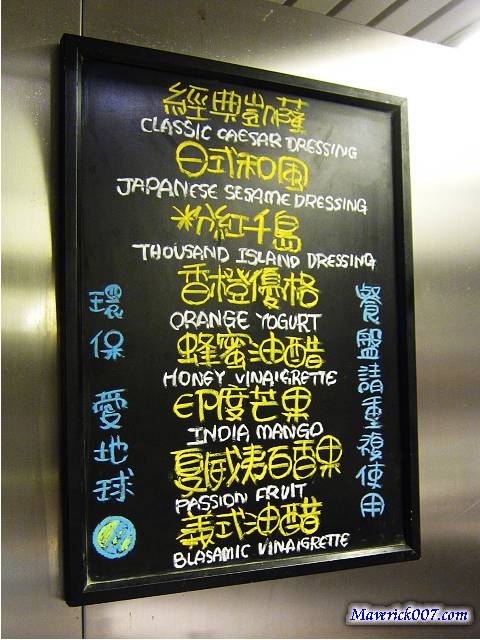 經典凱薩
CLASSIC CAESAR DRESSING
日式和風
JAPANESE SESAME DRESSING
粉紅千島
THOUSAND ISLAND DRESSING
香橙優格
ORANGE YOGURT
蜂蜜油醋
HONEY VINAIGRETTE
印度芒果
INDIA MANGO
夏威夷百香果
PASSION FRUIT
義式油醋
BLASAMIC VINAIGRETTE
環保 愛地球
餐盤請重複使用
Maverick007.com